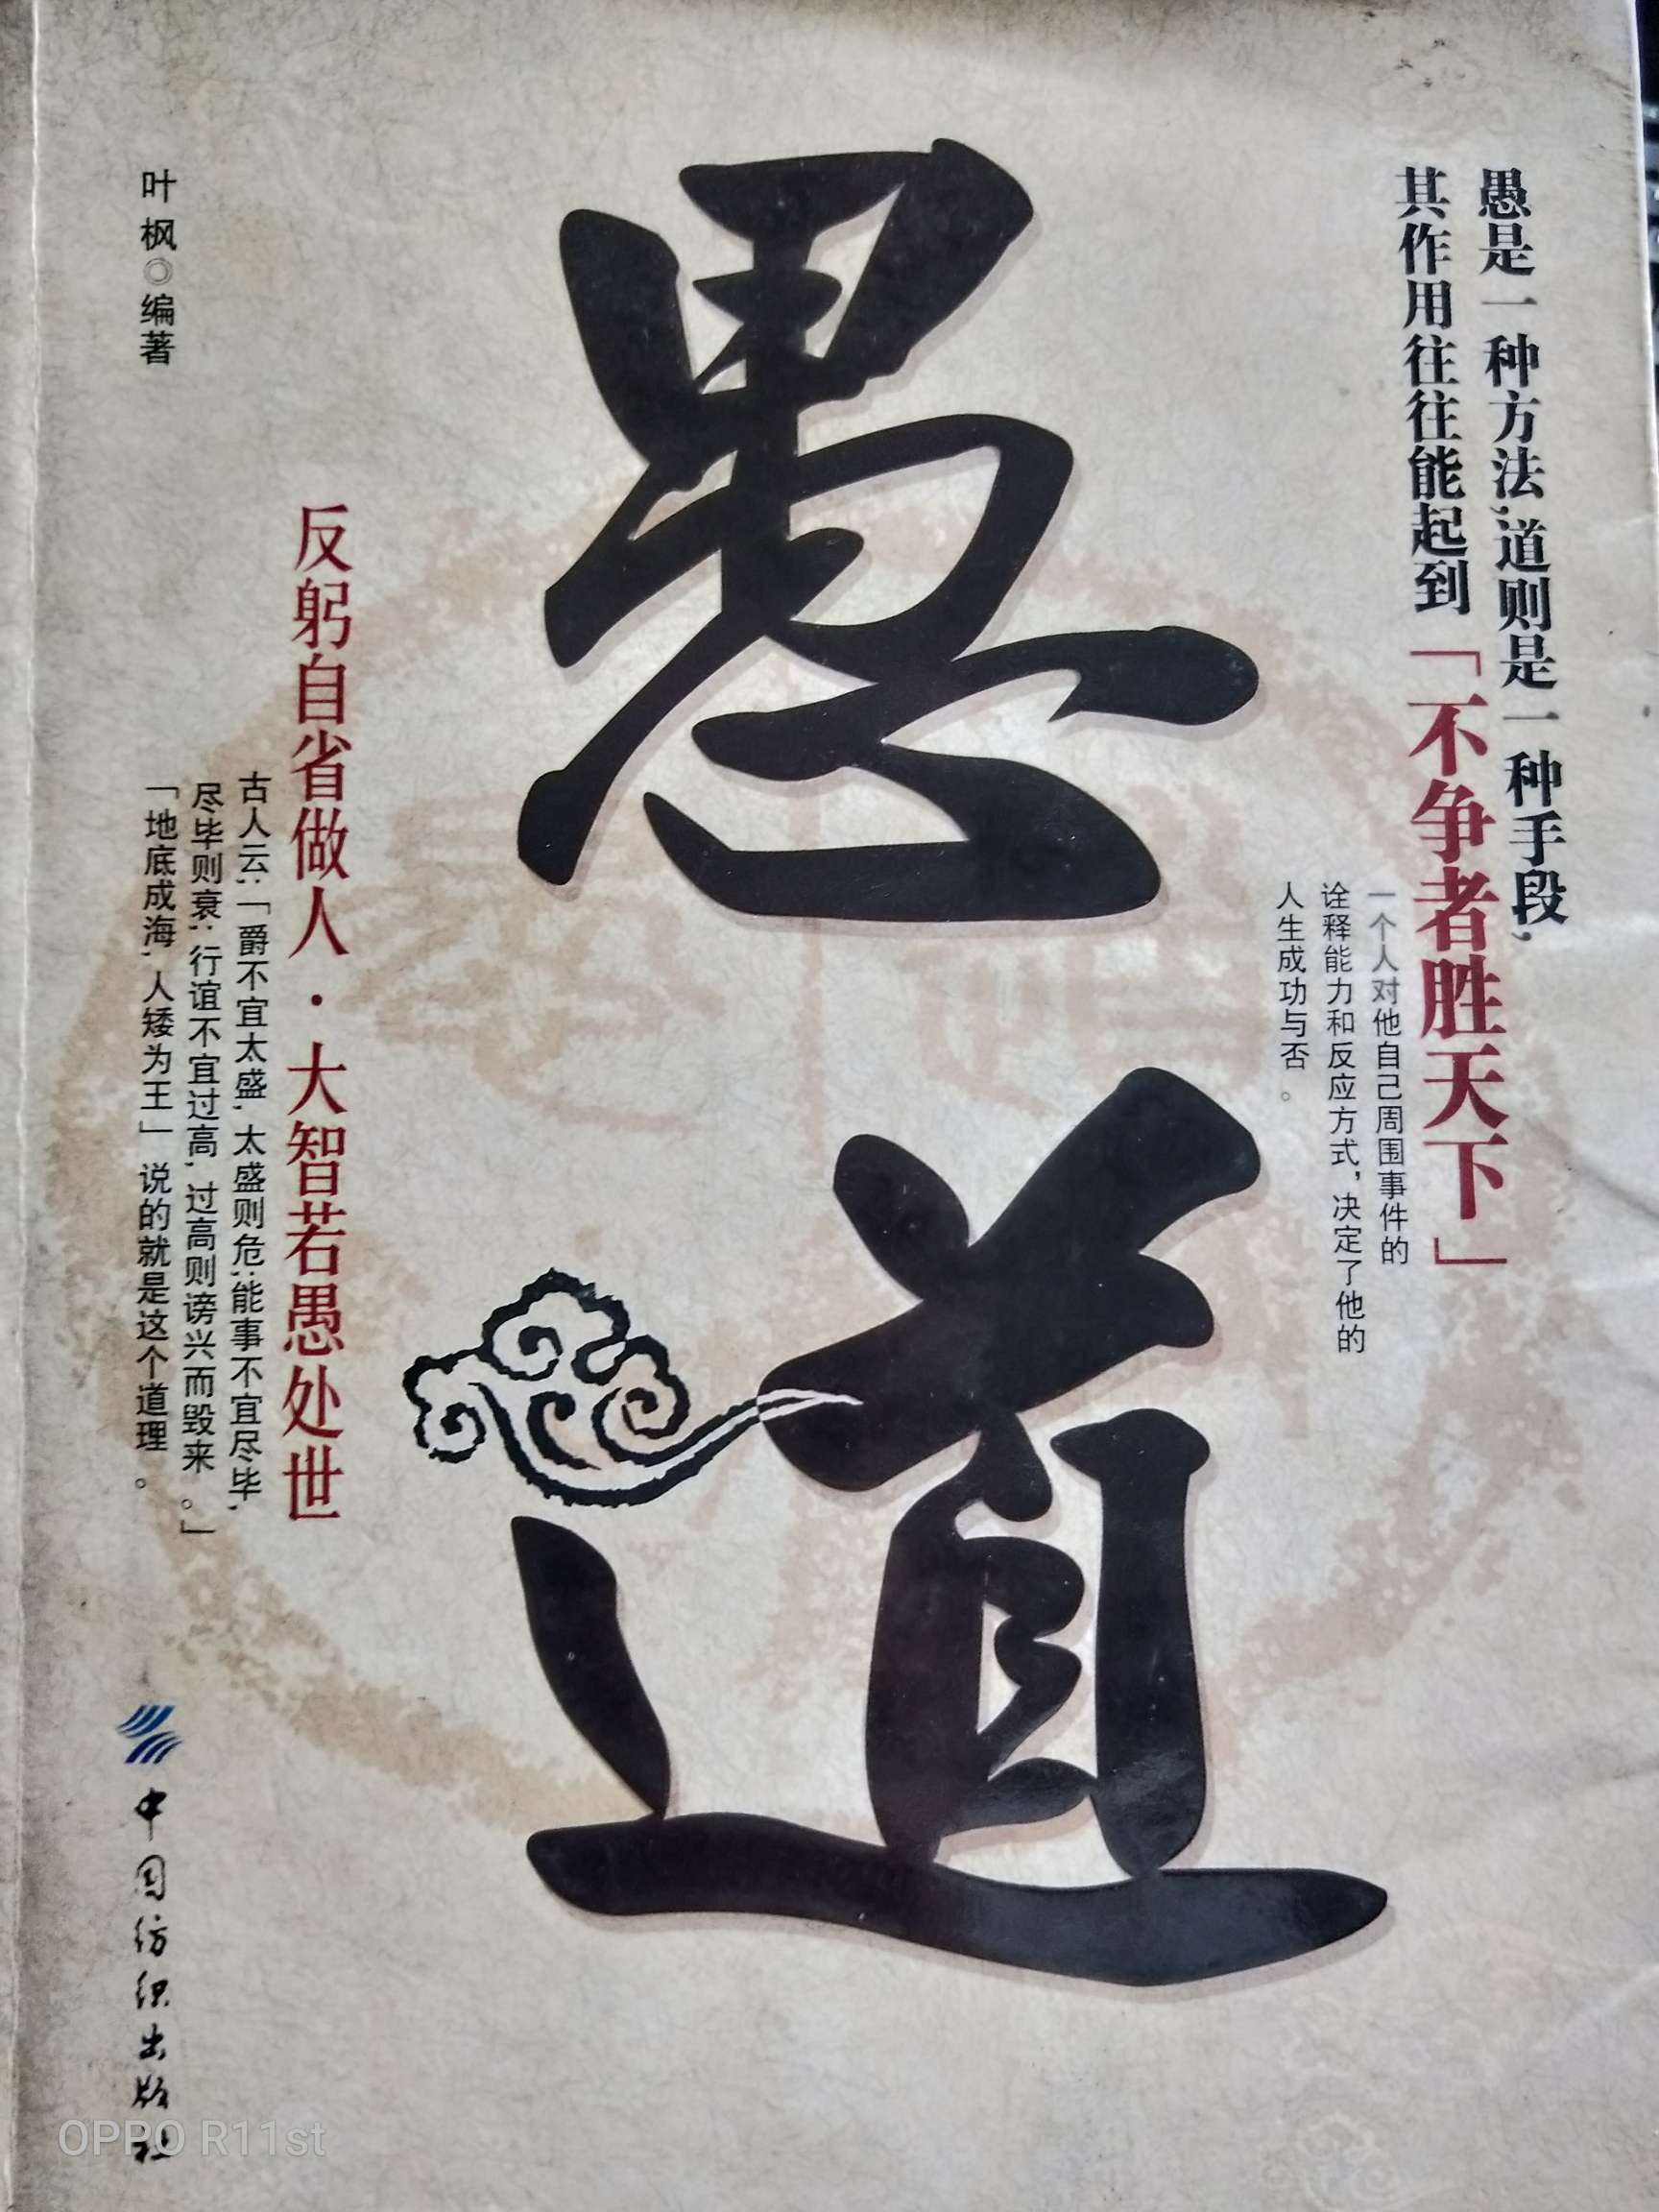 愚是一种方法,道则是一种手段,
其作用往往能起到「不争者胜天下」
一个人对他自己周围事件的
诠释能力和反应方式，决定了他的
人生成功与否。
愚道
反躬自省做人·大智若愚处世
古人云:「爵不宜太盛,太盛则危;能事不宜尽毕,
尽毕则衰;行谊不宜过高,过高则谤兴而毁来。」
「地底成海,人矮为王」说的就是这个道理。
叶枫◎编著
中国纺织出版社
OPPO R11st